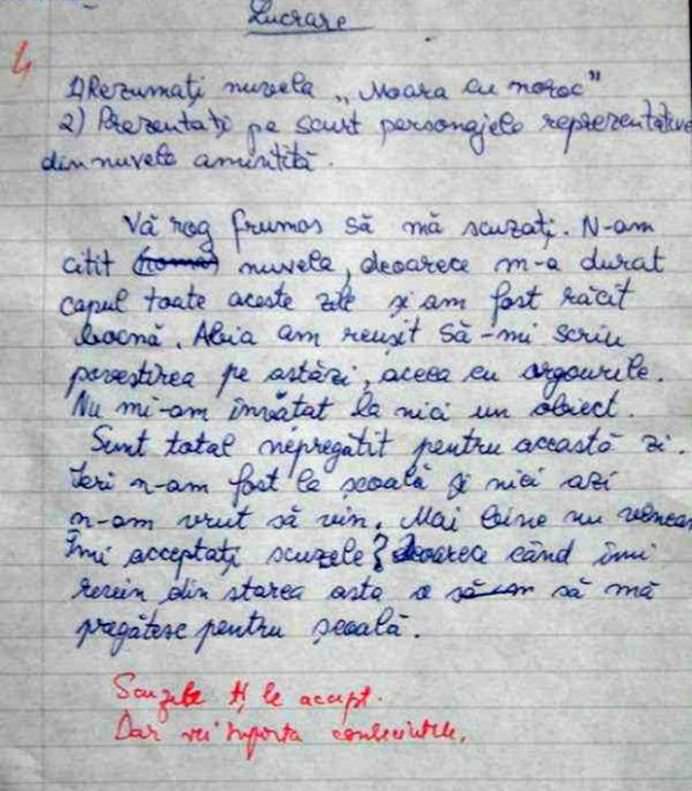 Lucrare
4
1) Rezumați nuvela „Moara cu noroc"
2) Prezentați pe scurt personajele reprezentative
din nuvela amintită.
Vă rog frumos să mă scuzați. N-am
citit (roma) nuvela, deoarece m-a durat
capul toate aceste zile și am fost răcit
bocnă. Abia am reușit să-mi scriu
povestirea pe astăzi, aceea cu argourile.
Nu mi-am învățat la nici un obiect.
Sunt total nepregătit pentru această zi.
Ieri n-am fost la școală și nici azi
n-am vrut să vin. Mai bine nu veneam
Îmi acceptați scuzele? deoarece când îmi
revin din starea asta o să-m să mă
pregătesc pentru școală.
Scuzele ți le accept.
Dar vei suporta consecințele.